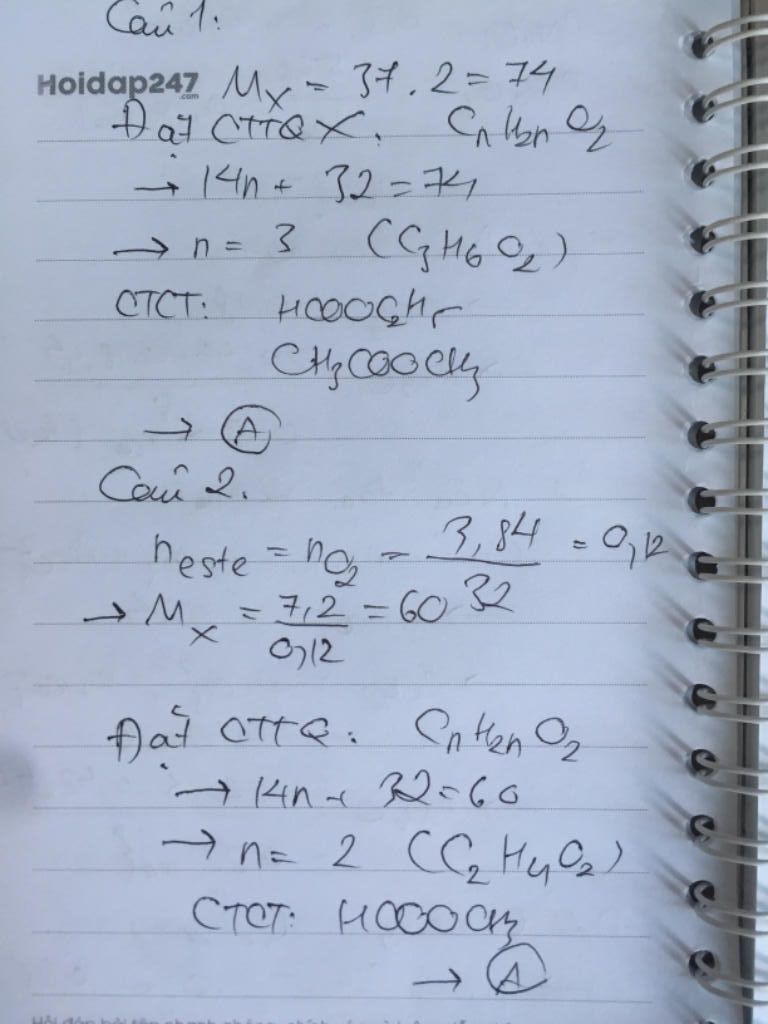 Câu 1:
Hoidap247
.com
Mx = 37.2 = 74
Đặt CTTQ X: CnH2nO2
→ 14n + 32 = 74
→ n = 3 (C3H6O2)
CTCT: HCOOC2H5
CH3COOCH3
→ A
Câu 2.
neste = nO2 = 3,84/32 = 0,12
→ Mx = 7,2/0,12 = 60
Đặt CTTQ: CnH2nO2
→ 14n + 32 = 60
→ n = 2 (C2H4O2)
CTCT: HCOOCH3
→ A